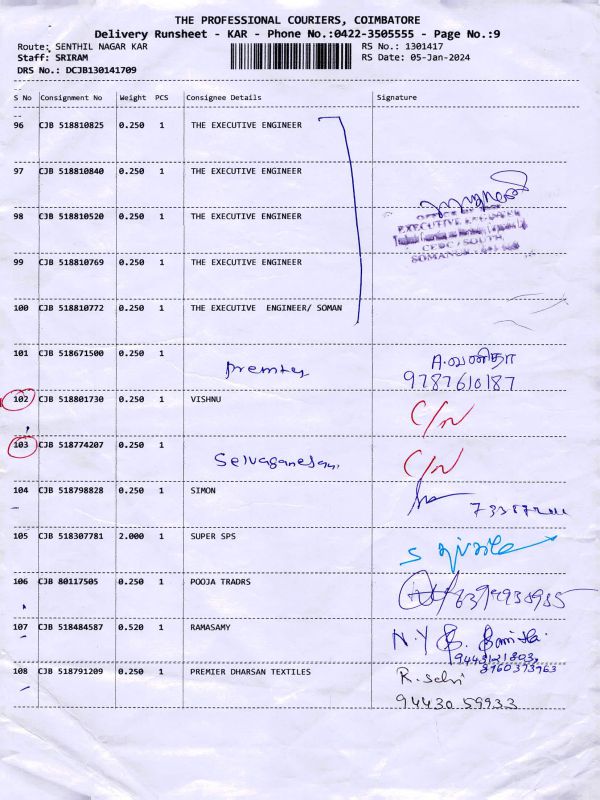 THE PROFESSIONAL COURIERS, COIMBATORE
Delivery Runsheet - KAR - Phone No.:0422-3505555 - Page No.:9
Route: SENTHIL NAGAR KAR RS No.: 1301417
Staff: SRIRAM RS Date: 05-Jan-2024
DRS No.: DCJB130141709
S No Consignment No Weight PCS Consignee Details Signature
96 CJB 518810825 0.250 1 THE EXECUTIVE ENGINEER
97 CJB 518810840 0.250 1 THE EXECUTIVE ENGINEER
98 CJB 518810520 0.250 1 THE EXECUTIVE ENGINEER
EXECUTIVE ENGINEER
CEDC/SOUTH
99 CJB 518810769 0.250 1 THE EXECUTIVE ENGINEER
100 CJB 518810772 0.250 1 THE EXECUTIVE ENGINEER/ SOMAN
101 CJB 518671500 0.250 1 Premier A.வனிதா
9787610187
102 CJB 518801730 0.250 1 VISHNU C/N
103 CJB 518774207 0.250 1 Selvaganesan. C/N
104 CJB 518798828 0.250 1 SIMON
105 CJB 518307781 2.000 1 SUPER SPS
106 CJB 80117505 0.250 1 POOJA TRADRS
107 CJB 518484587 0.520 1 RAMASAMY N.Y
9443121803,
8760373763
108 CJB 518791209 0.250 1 PREMIER DHARSAN TEXTILES R. Selvi
94430 59933